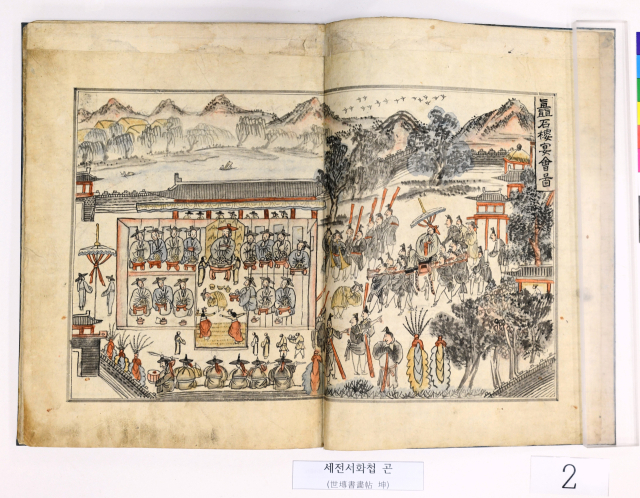 矗石樓宴會啚
세전서화첩 곤
(世傳書畵帖 坤)
2